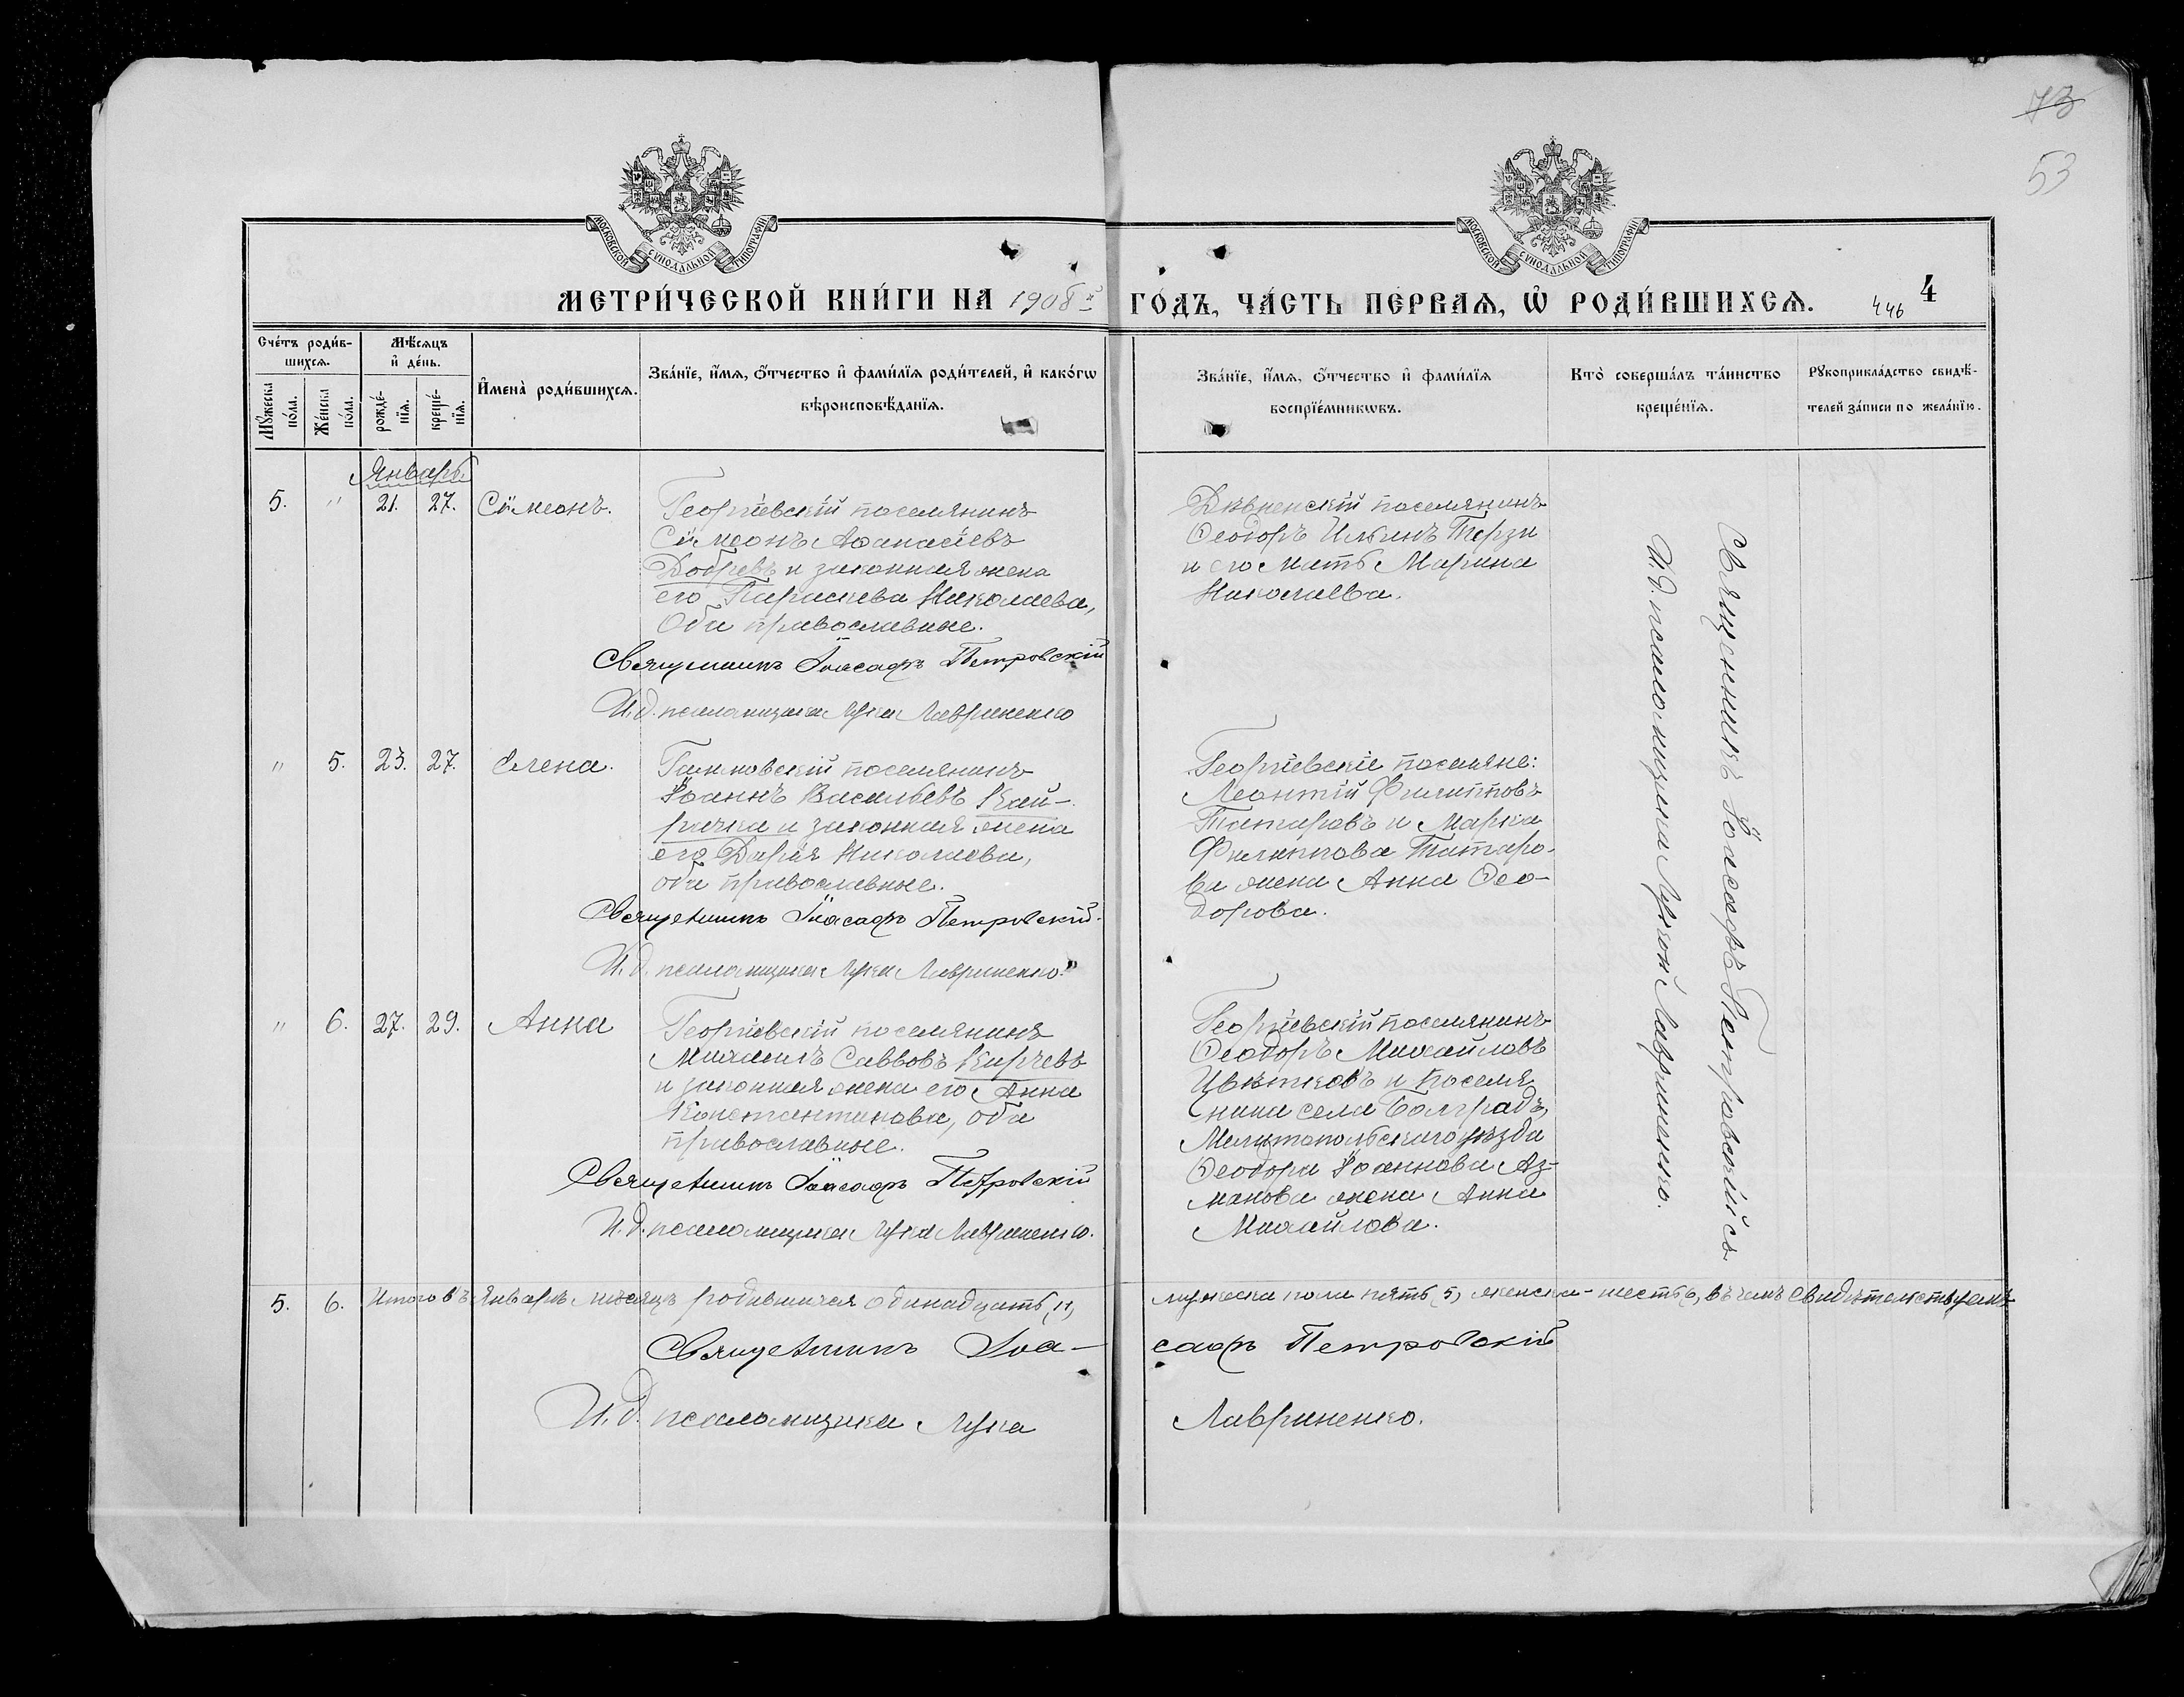 73
53
МОСКОВСКОЙ СѴНОДАЛЬНОЙ ТИПОГРАФІИ
МОСКОВСКОЙ СѴНОДАЛЬНОЙ ТИПОГРАФІИ
МЕТРИ́ЧЕСКОЙ КНИ́ГИ НА 1908й ГО́ДЪ, ЧА́СТЬ ПЕ́РВАЯ, Ѽ РОДИ́ВШИХСЯ. 446 4
Сче́тъ роди́в-
шихся.
Мѣ́сяцъ
и҆ де́нь.
Мꙋ́жеска по́ла.
Же́нска по́ла.
рожде́-
нїя.
креще́-
нїя.
И҆мена̀ роди́вшихся.
Зва́нїе, и҆́мя, ѻ҆́тчество и҆ фами́лїя роди́телей, и҆ како́гѡ
вѣроисповѣ́данїя.
Зва́нїе, и҆́мя, ѻ҆́тчество и҆ фами́лїя
воспрїе́мникѡвъ.
Кто̀ соверша́лъ та́инство
креще́нїя.
Рꙋкоприкла́дство свидѣ́-
телей за́писи по жела́нїю.
Январь
5. " 21. 27. Сѵмеонъ.
Георгіевскій поселянинъ
Сѵмеонъ Аѳанасіевъ
Добревъ и законная жена
его Параскева Николаева,
Оба православные.
Священникъ Іоасафъ Петровскій
И. д. псаломщика Лука Лавриненко
Дѣвненскій поселянинъ
Ѳеодоръ Ильинъ Терзи
и его мать Марина
Николаева.
" 5. 23. 27. Елена.
поселянинъ
Іоаннъ Васильевъ Кай-
рачка и законная жена
его Дарія Николаева,
оба православные.
Священникъ Іоасафъ Петровскій.
И. д. псаломщика Лука Лавриненко.
Георгіевскіе поселяне:
Леонтій Филипповъ
Татаровъ и Марка
Филиппова Татаро-
ва жена Анна Ѳео-
дорова.
" 6. 27. 29. Анна
Георгіевскій поселянинъ
Михаилъ Саввовъ Кирчевъ
и законная жена его Анна
Константинова, оба
православные.
Священникъ Іоасафъ Петровскій
И. д. псаломщика Лука Лавриненко.
Георгіевскій поселянинъ
Ѳеодоръ Михайловъ
Цвѣтковъ и поселя
нина села Болградъ,
Мелитопольскаго уѣзда
Ѳеодора Іоаннова Аз-
манова жена Анна
Михайлова.
Священникъ Іоасафъ Петровскій съ
И. д. псаломщика Лукой Лавриненко.
5. 6. Итого въ Январѣ мѣсяцѣ родившихся одинадцать, 11, мужеска пола пять, 5, женска - шесть, 6, въ чемъ свидѣтельствуемъ
Священникъ Іоа-
сафъ Петровскій
И. д. псаломщика Лука
Лавриненко.